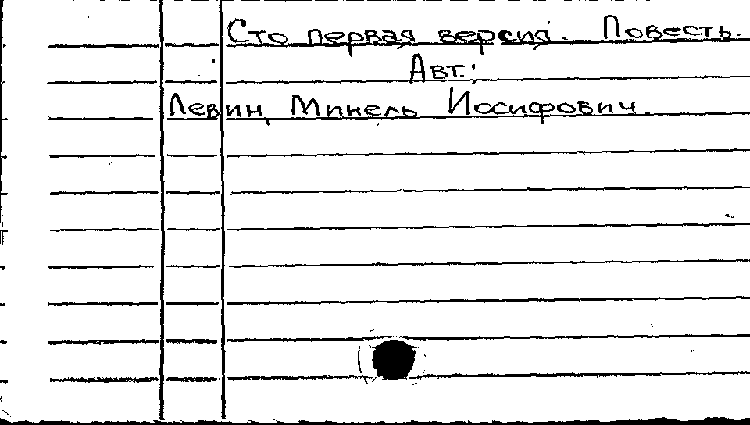 Сто первая версия. Повесть.
Авт.:
Левин, Микель Иосифович.